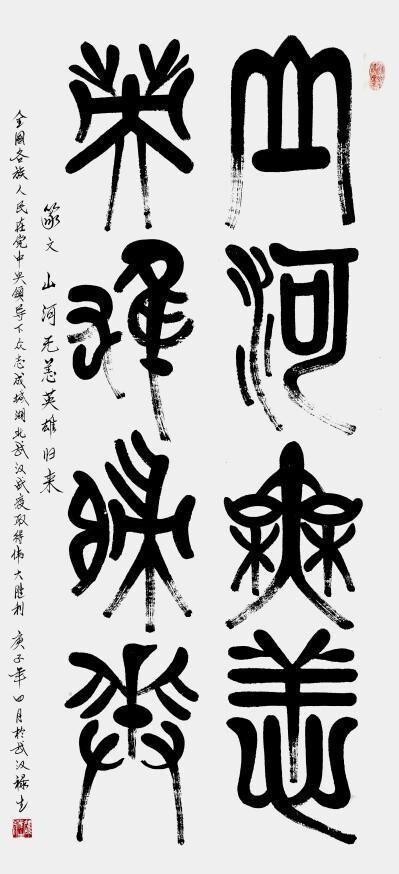 山河無恙
英雄歸來
篆文 山河无恙英雄归来
全國各族人民在党中央领导下众志成城湖北武汉战疫取得伟大胜利 庚子年四月於武汉